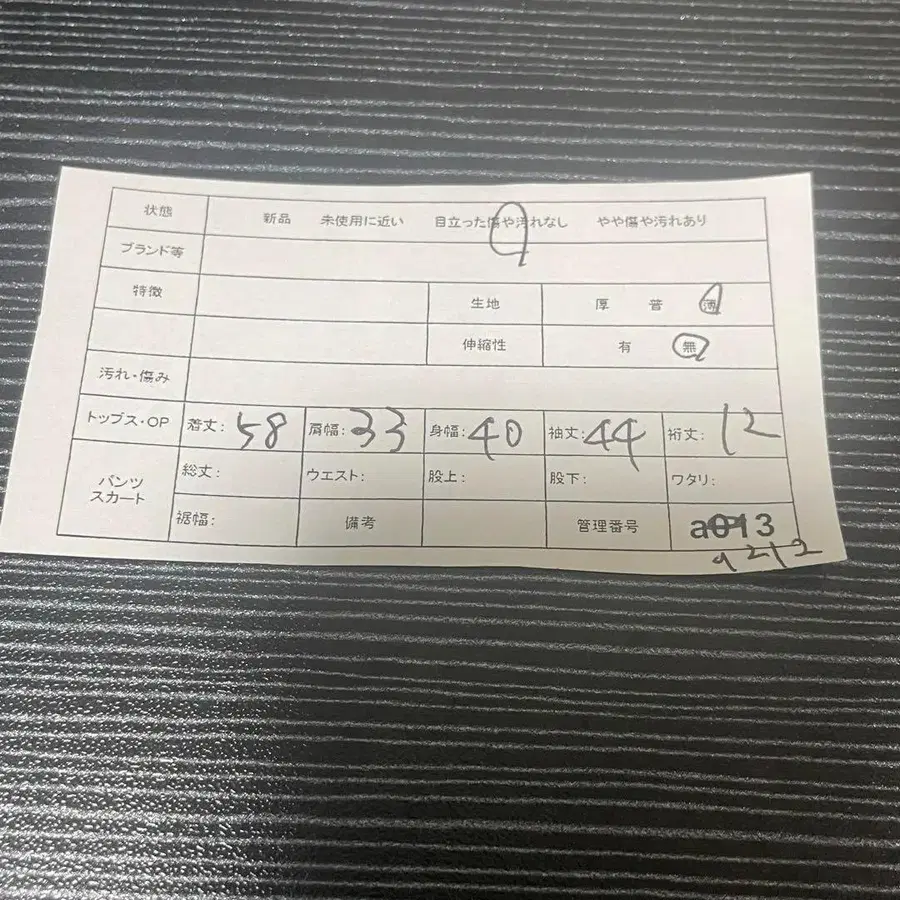 状態 新品 未使用に近い 目立った傷や汚れなし やや傷や汚れあり
ブランド等
特徴 生地 厚 普 薄
伸縮性 有 無
汚れ・傷み
トップス・OP 着丈: 58 肩幅: 33 身幅: 40 袖丈: 44 裄丈: 12
パンツ スカート 総丈: ウエスト: 股上: 股下: ワタリ:
裾幅: 備考 管理番号 a013
a212